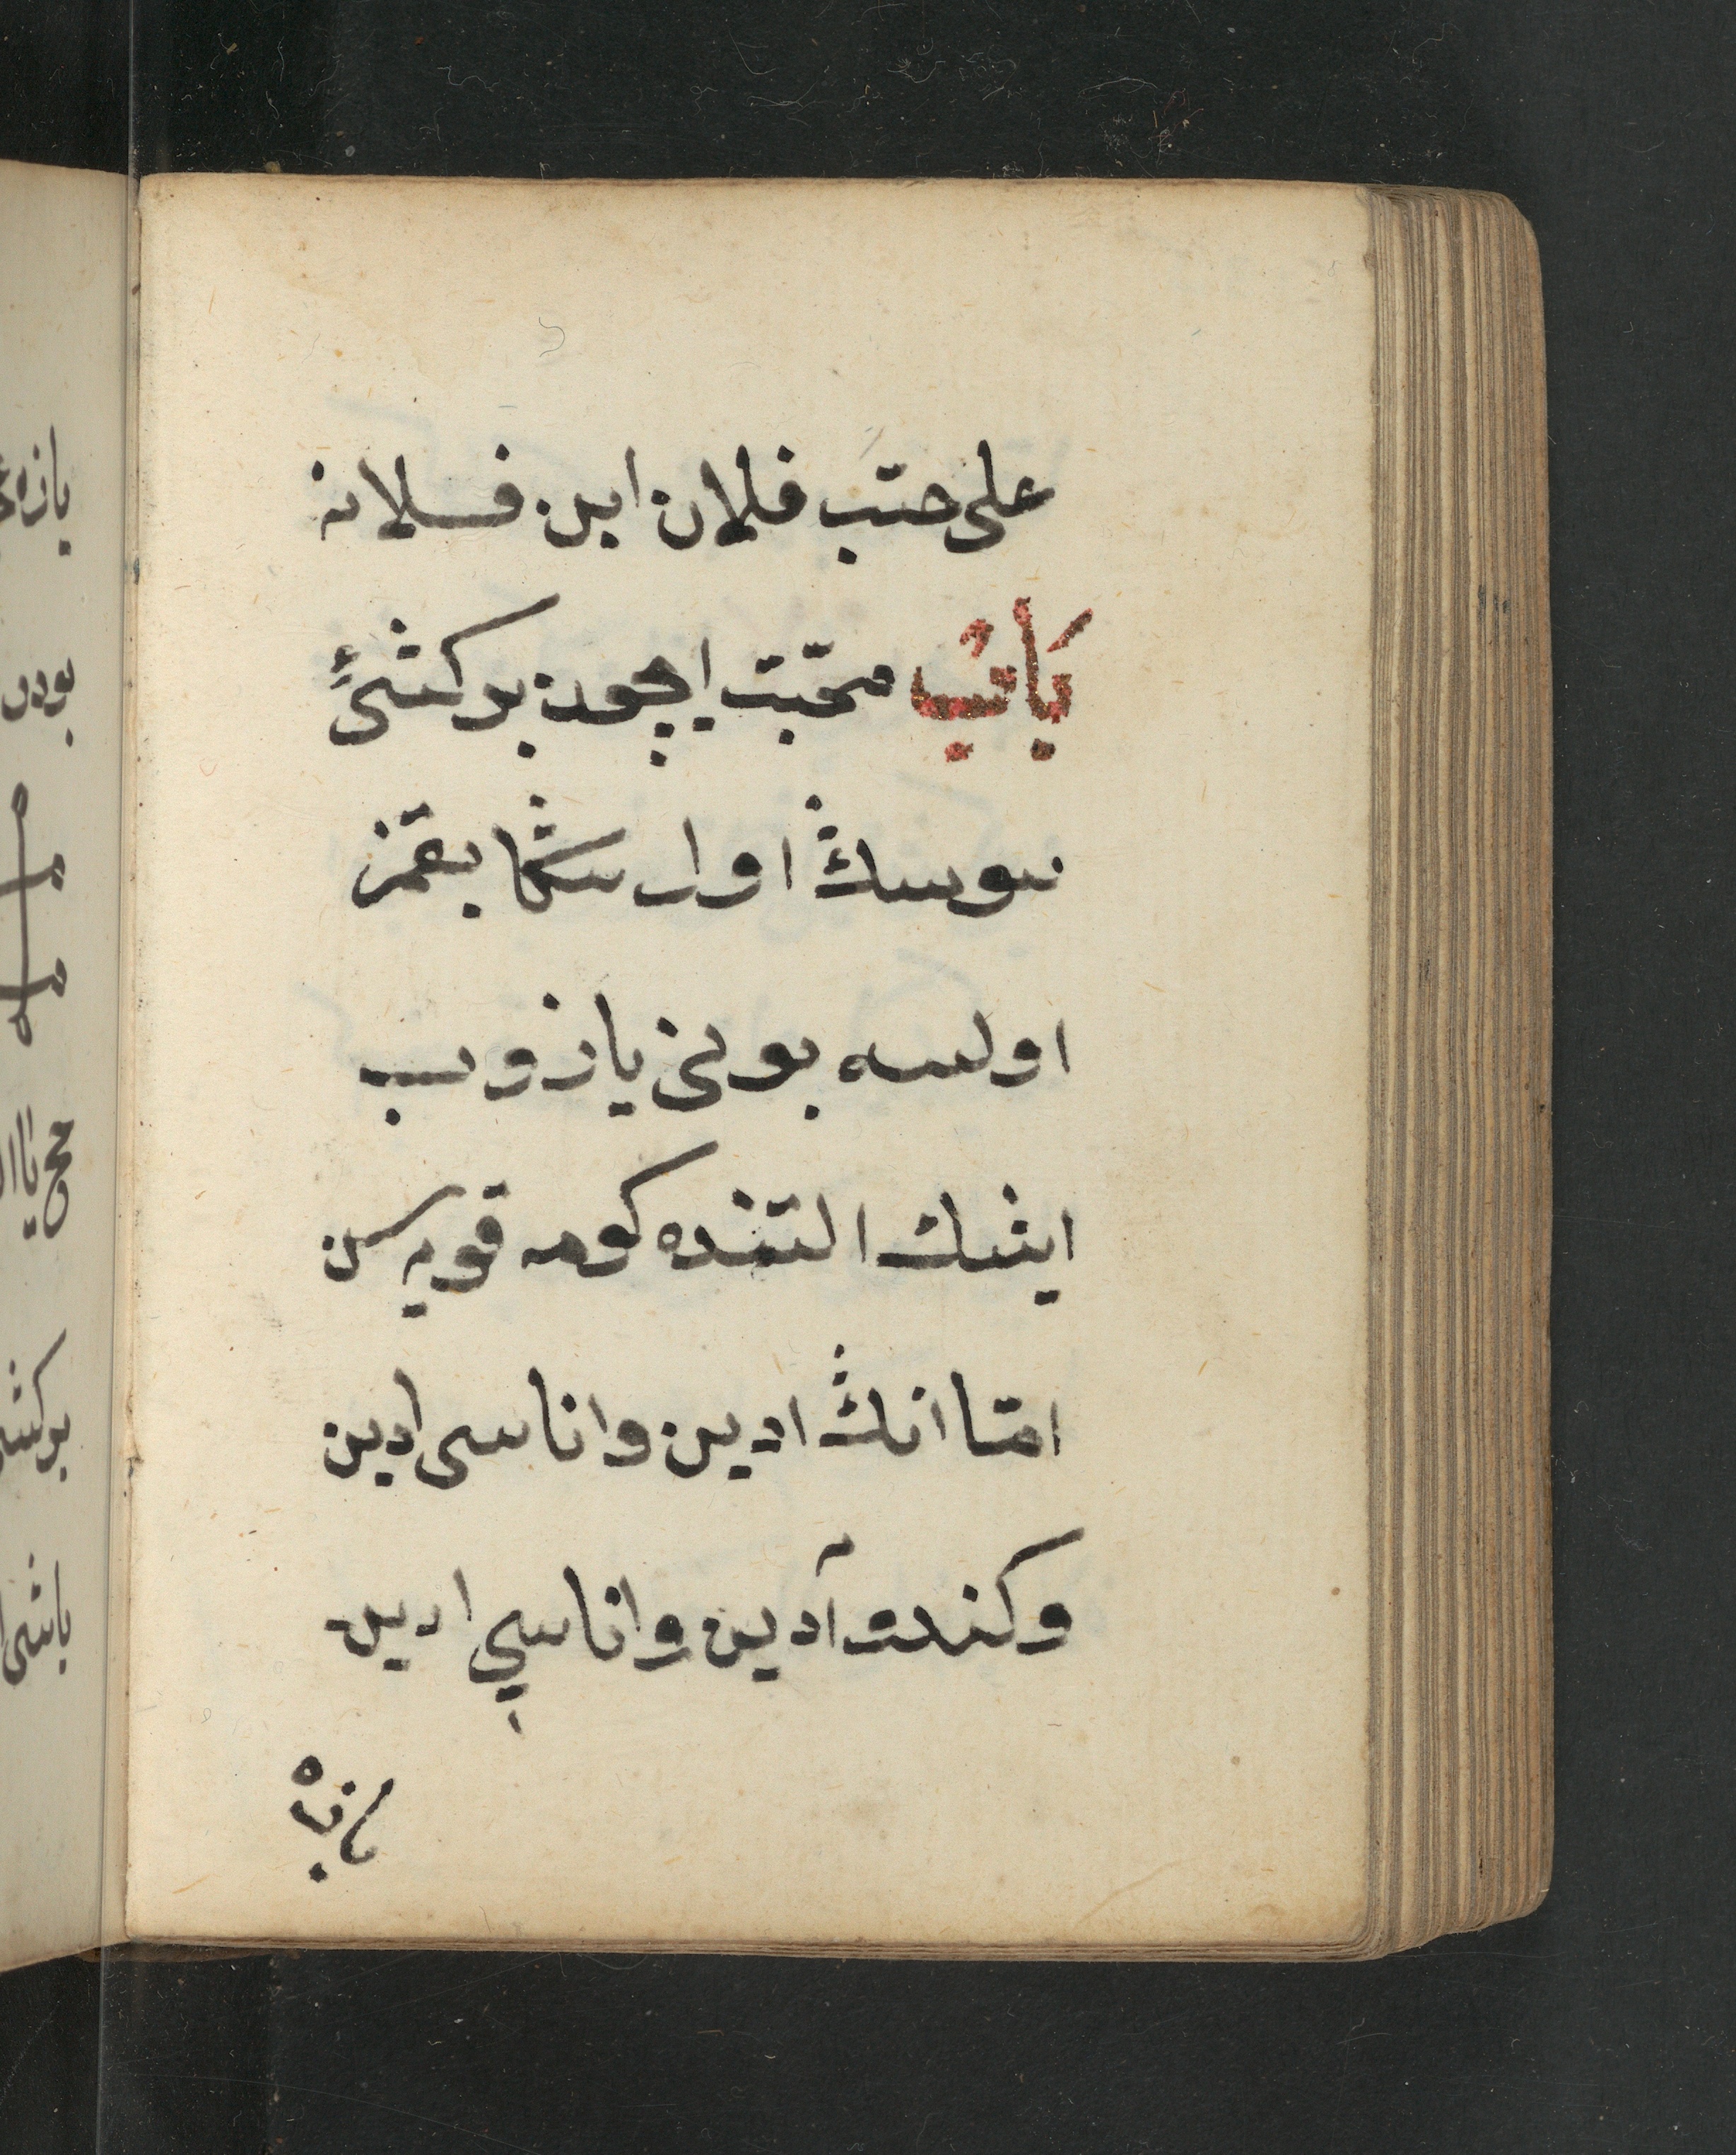 على حبّ فلان ابن فلانه
بَابٌ محبّت ايچون بر كشئ
سوسڭ اول سڭا بقمز
اولسه بونى يازوب
ايشك التنده كومه قويه سن
امّا انڭ ادين واناسى ادين
وكندو آدين واناسي ادين
يازه